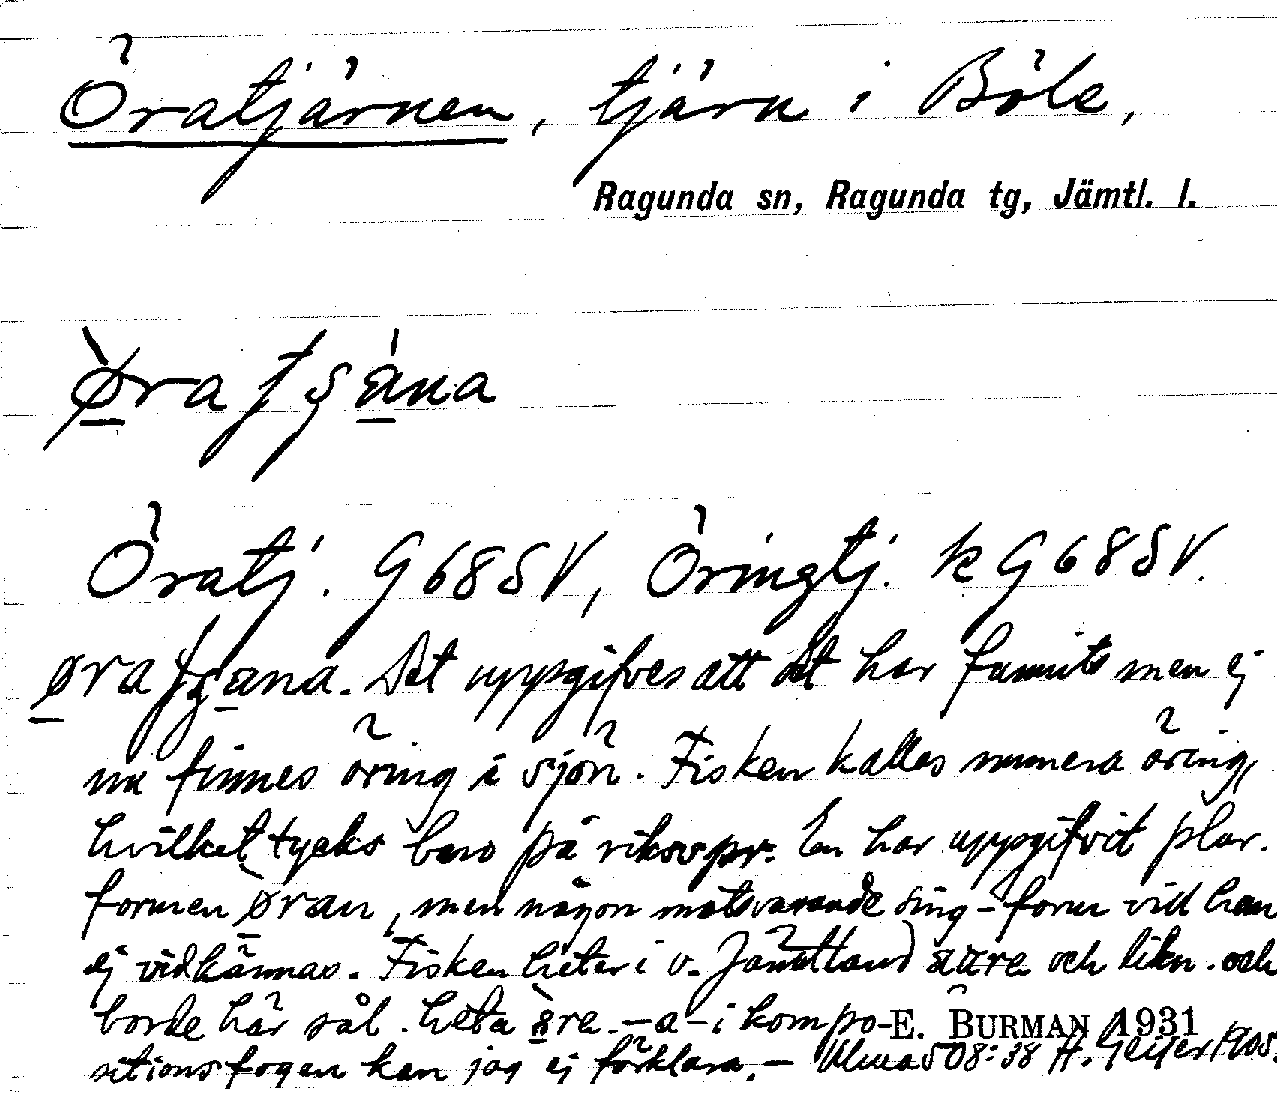 Öratjärnen, tjärn i Böle,
Ragunda sn, Ragunda tg, Jämtl. l.
Öratj. G68SV, Öringtj. k G68SV.
Det uppgifves att det har funnits men ej
nu finnes öring i sjön. Fisken kallas numera öring,
hvilket tycks bero på riksspr. En har uppgifvit plur.
formen øran, men någon motsvarande sing-form vill han
ej vidkännas. Fisken heter i v. Jämtland och likn. och
borde här sål. heta -a- i kompo-
sitionsfogen kan jag ej förklara. –
E. BURMAN 1931
H. Geijer 1908.